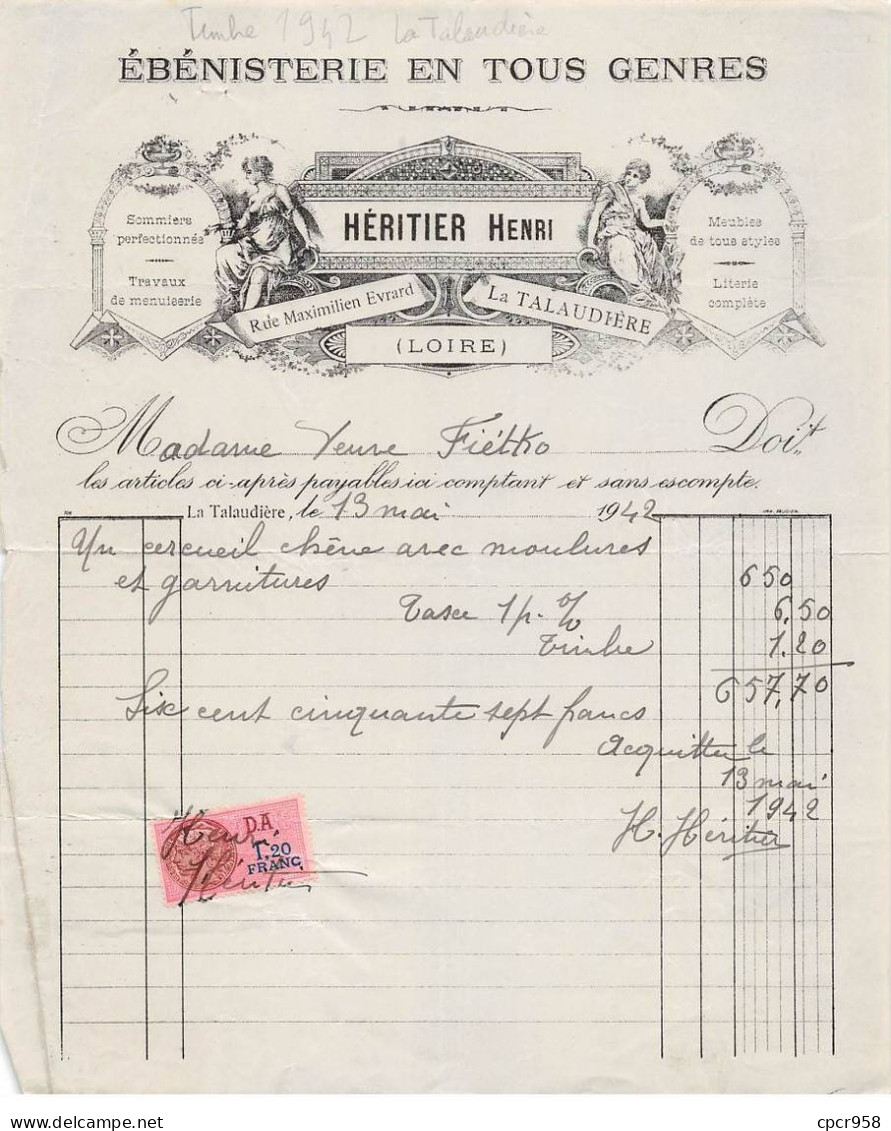 Timbre 1942 La Talaudière
ÉBÉNISTERIE EN TOUS GENRES
HÉRITIER HENRI
Sommiers
perfectionnés
Travaux
de menuiserie
Meubles
de tous styles
Literie
complète
Rue Maximilien Evrard
LA TALAUDIÈRE
(LOIRE)
Madame Veuve Fiétko Doit
les articles ci-après payables ici comptant et sans escompte.
La Talaudière, le 13 mai 1942
Un cercueil chêne avec moulures
et garnitures 650
Taxe 1 p. % 6,50
Timbre 1.20
657,70
Six cent cinquante sept francs
Acquitter le
13 mai
1942
H. Héritier
D.A.
1.20
FRANC
Henri
Héritier
cpcr958